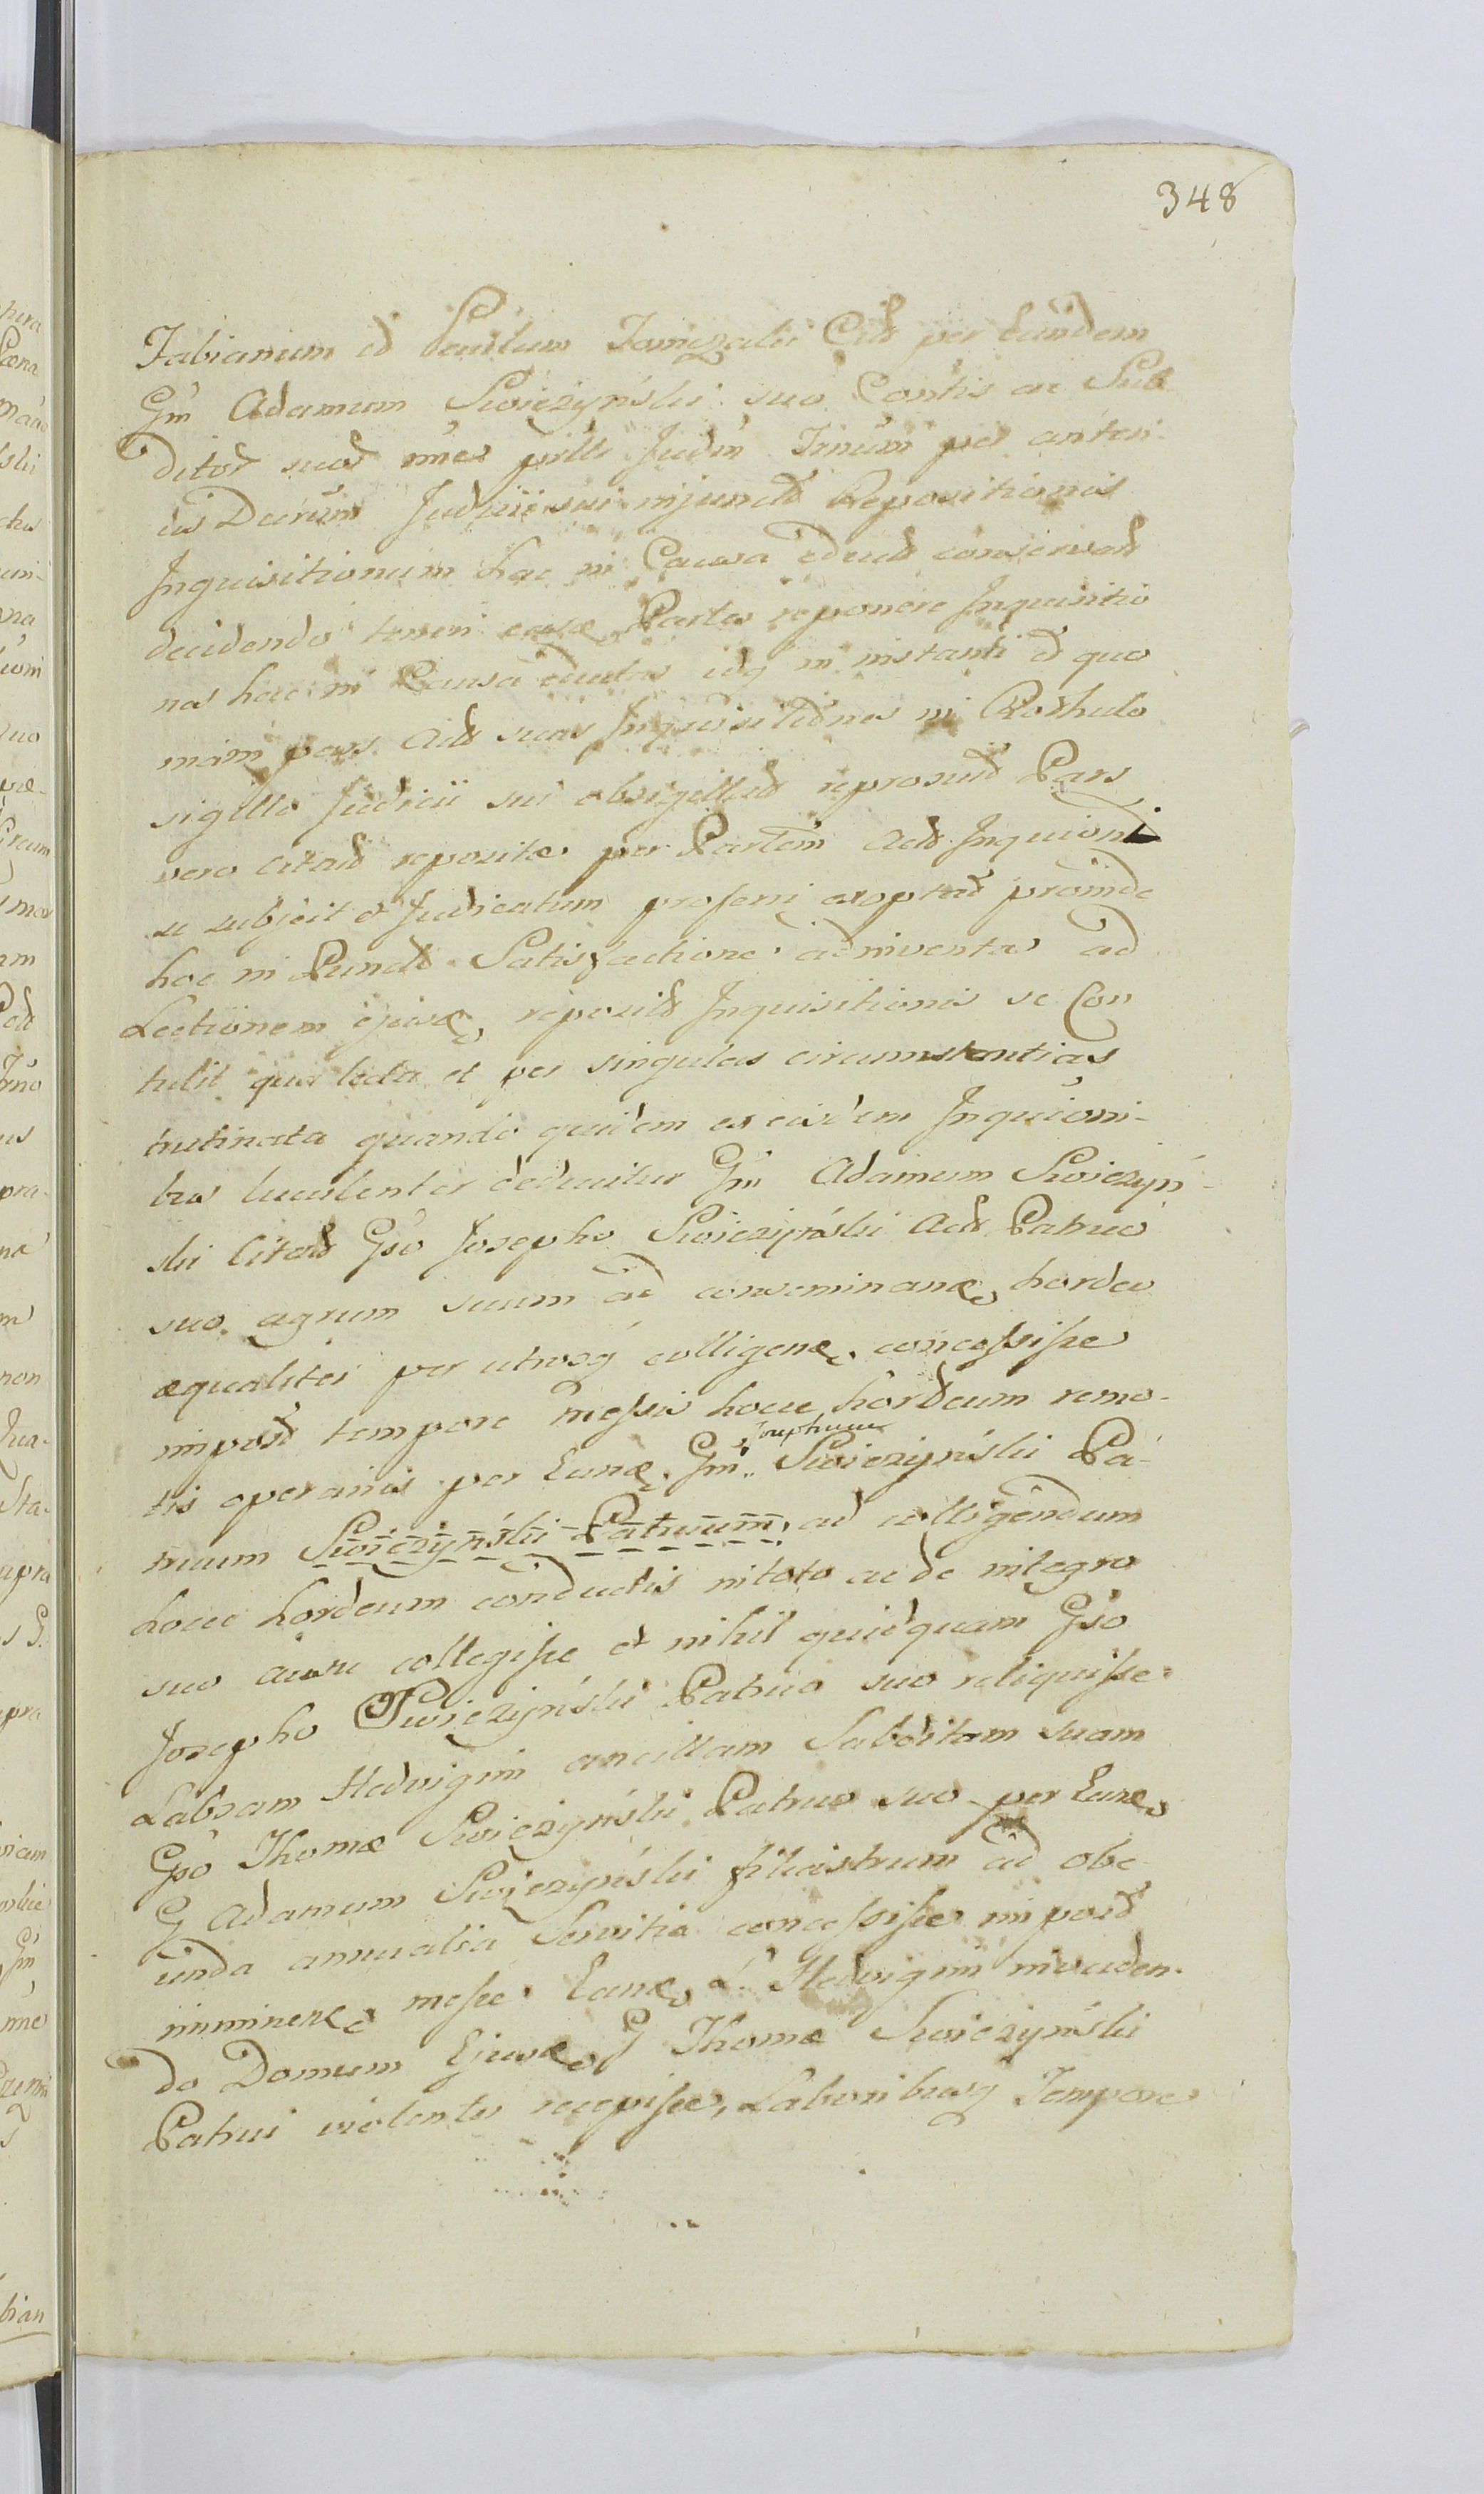 348
Fabianum et Paulum Jamczalii Citt per Eundem
Gm Adamum Swiezynski suo Contis ac Sub
ditos suos in praes Judm Trnum per anteri
us Decrum Judicii sui injunctt Repositionis
Inquisitionum hac in Causa educt conservatt
decidendo teneri easdem Partes reponere Inquisitio
nes hac in Causa eductas idq in instanti et quo
niam pars Actt suas Inquisitiones in Rothulo
sigillo Judicii sui obsigillatt reposuit Pars
vero Citatt repositae per Partem Actt Inquioni
se subjecit et Judicatum proferri exoptat proinde
hoc in Puncto Satisfactione adinventa ad
Lectionem ejusd reposit Inquisitionis se Con
tulit qua lecta et per singulas circumstantias
trutinata quando quidem ex eisdem Inquioni-
bus luculenter deducitur Gm Adamum Swiezyn-
ski Citatt Gso Josepho Swiezynski Actt Patruo
suo agrum suum ad conseminand hordeo
aequaliter per utrosq colligend concessisse
impost tempore messis hocce hordeum remo-
tis operariis per Eund Gm Josephum Swiezynski Pa-
truum Swiezynski Patruum ad colligendum
hocce hordeum conductis in toto ac de integro
suo ausu collegisse et nihil quidquam Gso
Josepho Swiezynski Patruo suo reliquisse
Labsam Hedvigim ancillam Subditam suam
Gso Thomae Swiezynski Patruo suo per Eund
G Adamum Swiezynski filiastrum ad obe
unda annualia Servitia concessisse impost
imminente messe Eand L Hedvigim invaden-
do Domum Ejusd G Thomae Swiezynski
Patrui violenter recepisse, Laboribusq Tempore